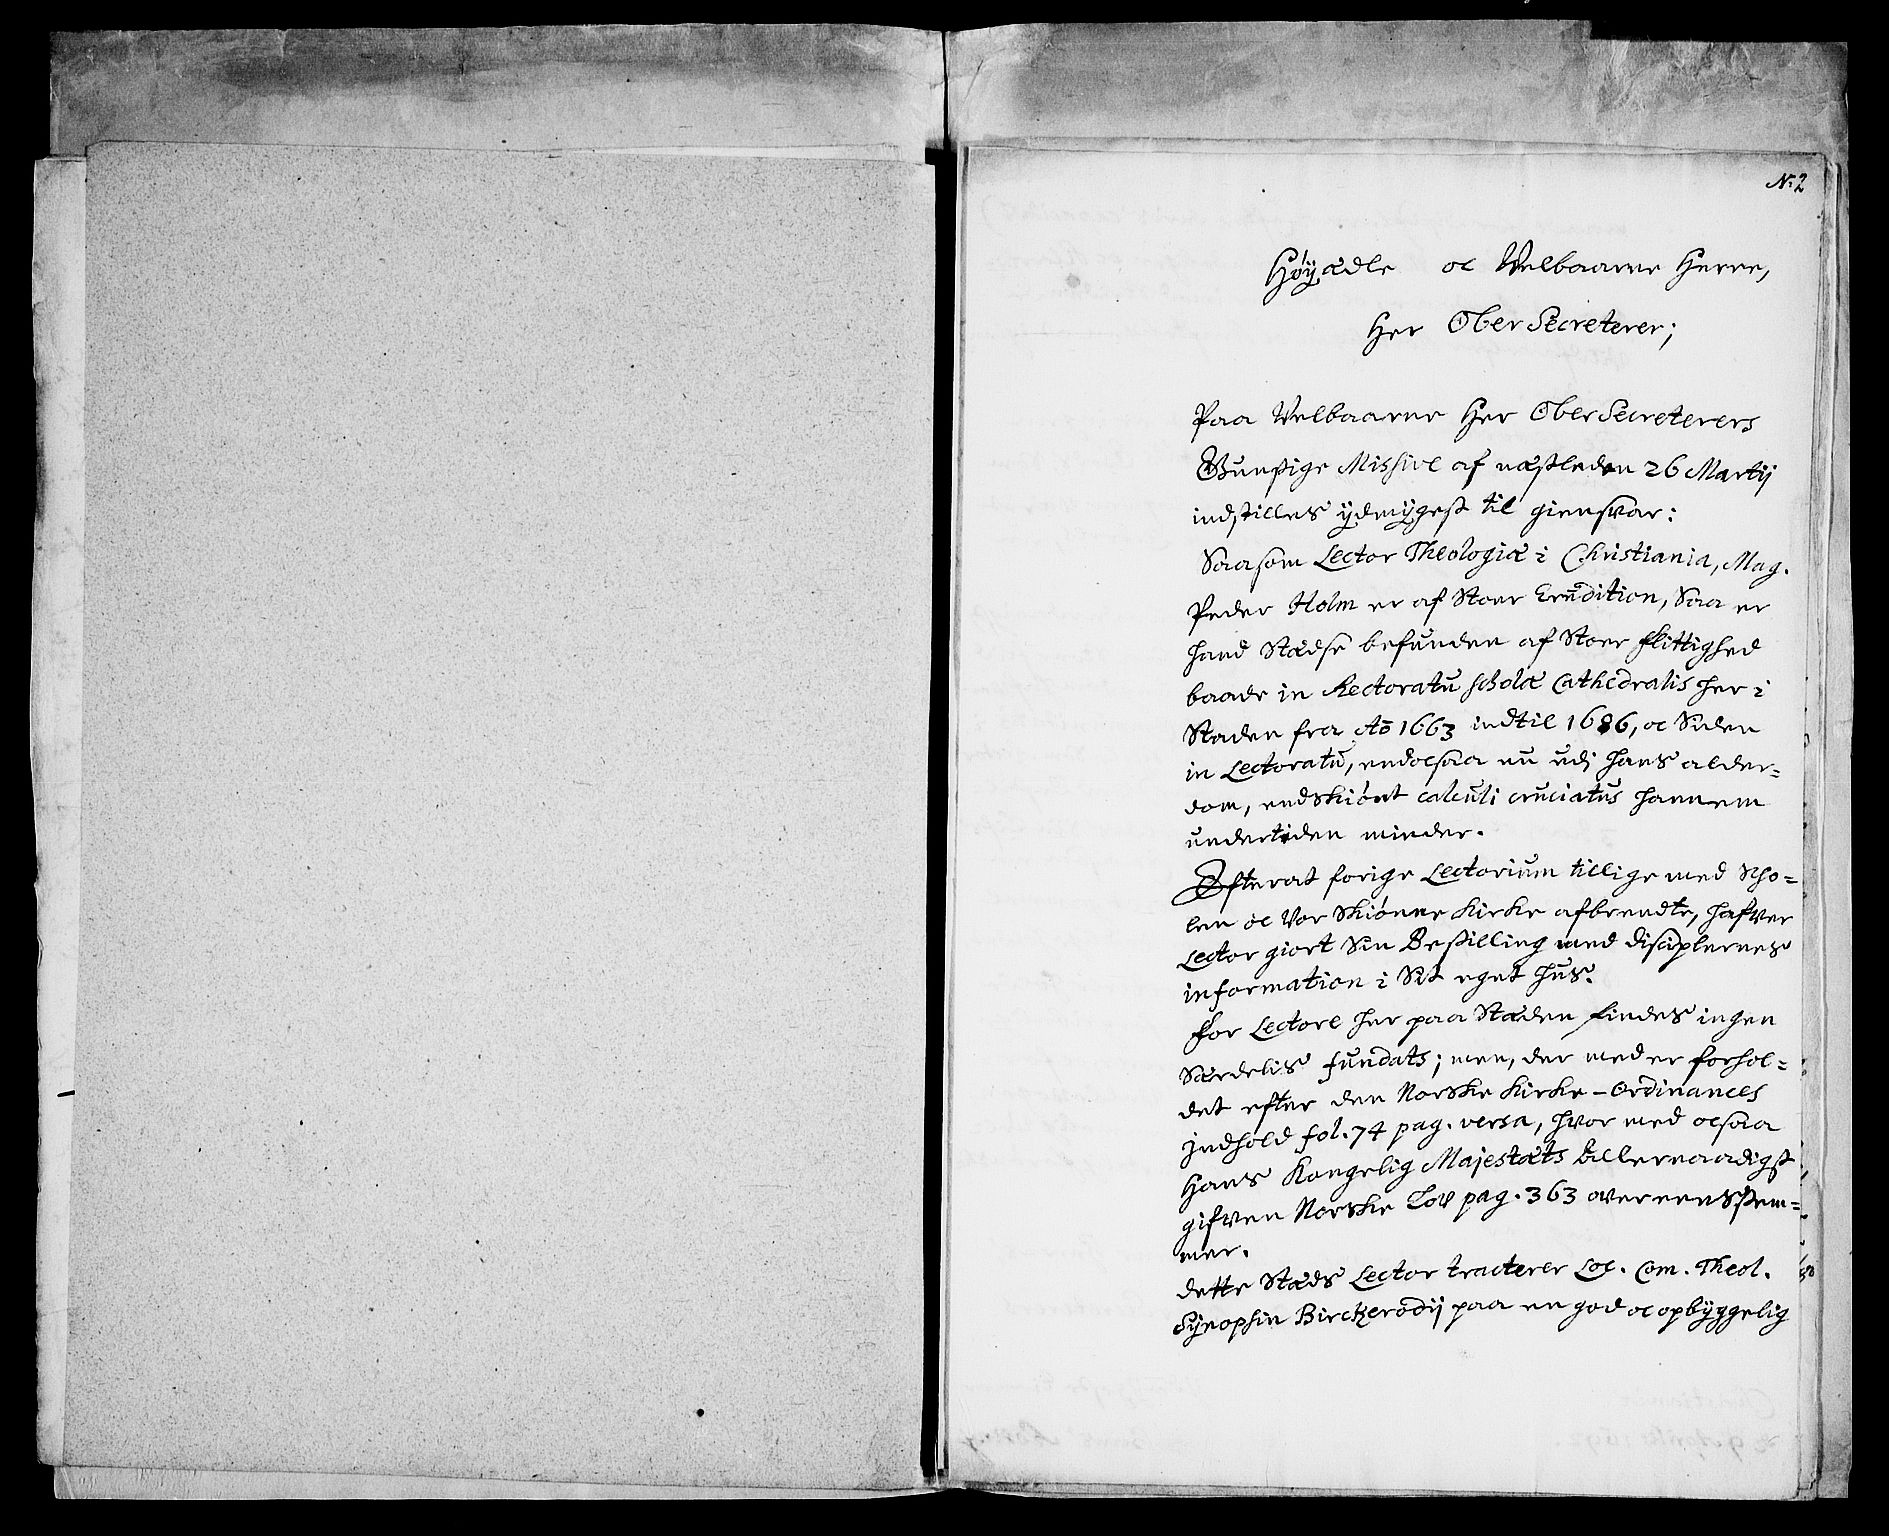 N: 2
Høÿædle oc Velbaarne Herre,
Her Ober Secreterer;
Paa Velbaarne Her Ober Secreterers
Gunstige Missive af næstleden 26 Martij
indstilles ÿdmÿgest til giensvar:
Saasom Lector Theologiæ i Christiania, Mag.
Peder Holm er af Stoer Erudition, Saa er
hand Stædse befunden af Stoer flittighed
baade in Rectoratu scholæ Cathedralis her i
Staden fra Aō 1663 indtil 1686, oc Siden
in Lectoratu, endocsaa nu udj hans alder=
dom, endskiønt calculi cruciatus hannem
undertiden minder.
Efterat forige Lectorium tillige med Scho=
len oc Vor Skiønne Kirke afbrendte, hafver
Lector giort Sin Bestilling med disciplernes
information i Sit eget Hus.
For Lectore her paa Stæden findes ingen
Særdelis fundats; men, der med er forhol=
det efter den Norske Kirke-Ordinances
Jndhold fol. 74 pag. versa, hvor med ocsaa
Hans Kongelig Majestæts allernaadigst
gifven Norske Lov pag. 363 overeensstem=
mer.
dette Stæds Lector tracterer Loc. Com. Theol.
Sÿnopsin Birckerodij paa en god oc opbÿggelig